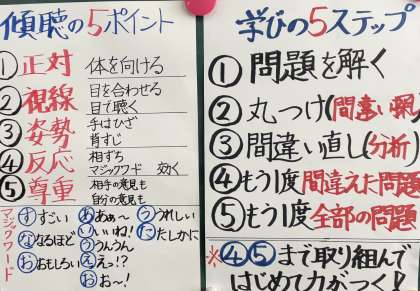 傾聴の5ポイント
①正対 体を向ける
②視線 目を合わせる
目で聴く
③姿勢 手はひざ
背すじ
④反応 相ずち
マジックワード 効く
⑤尊重 相手の意見も
自分の意見も
マジックワード
すすごい
ななるほど
おおもしろい
ああぁ～
いいいね!
ううんうん
ええっ!?
おお～!
ううれしい
たたしかに
学びの5ステップ
①問題を解く
②丸つけ(間違い探し)
③間違い直し(分析)
④もう1度間違えた問題
⑤もう1度全部の問題
※④⑤まで取り組んで
はじめて力がつく!